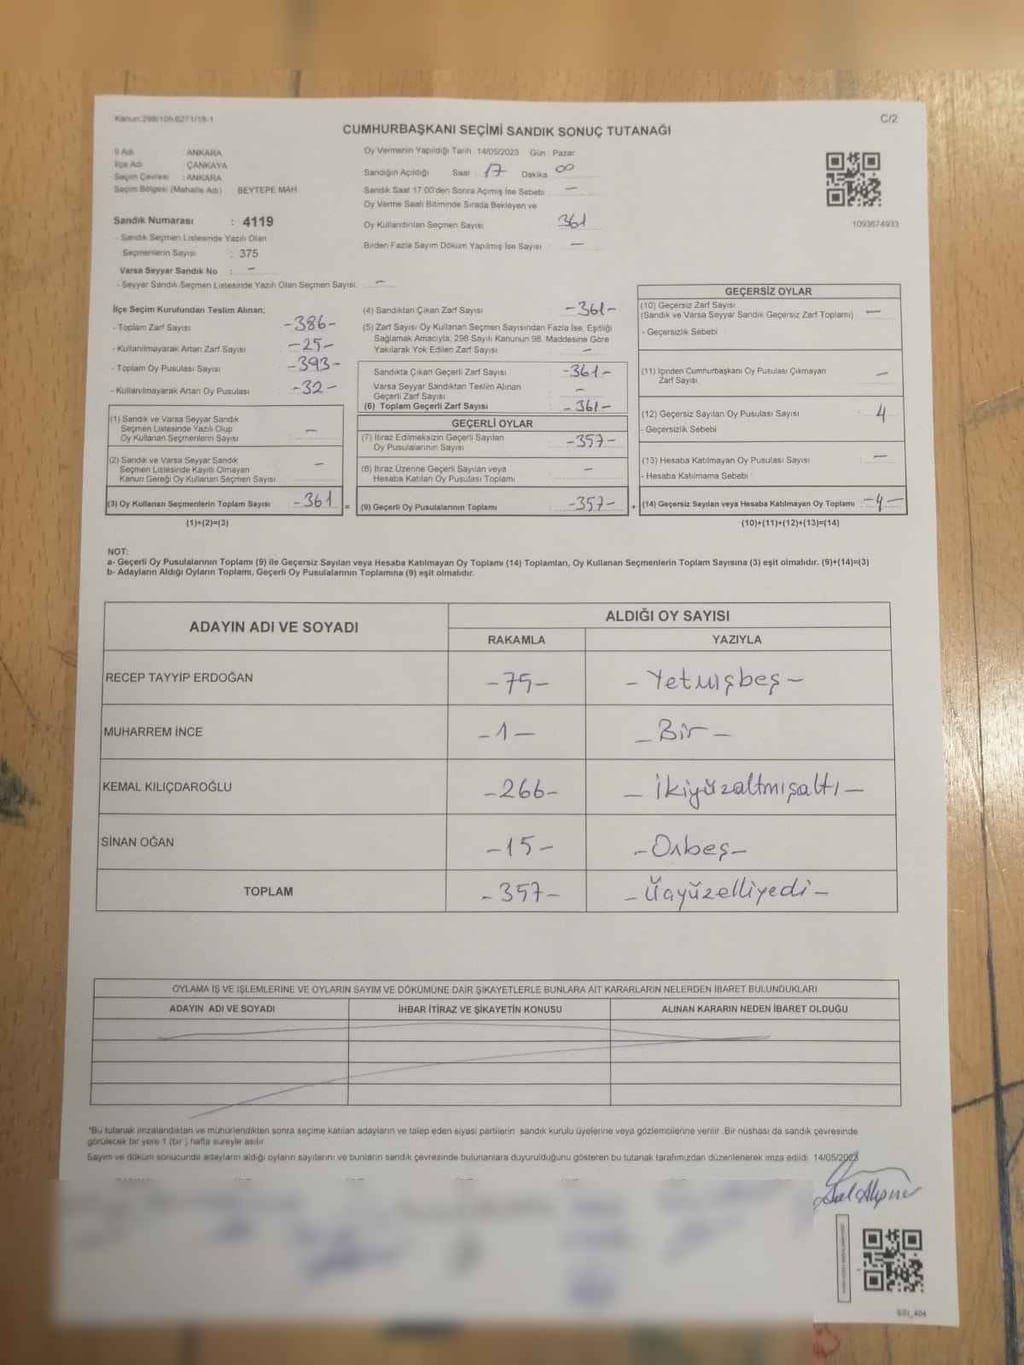 Kanun:298/109,6271/19-1
C/2
CUMHURBAŞKANI SEÇİMİ SANDIK SONUÇ TUTANAĞI
İl Adı ANKARA
İlçe Adı ÇANKAYA
Seçim Çevresi : ANKARA
Seçim Bölgesi (Mahalle Adı) BEYTEPE MAH
Sandık Numarası : 4119
- Sandık Seçmen Listesinde Yazılı Olan
Seçmenlerin Sayısı : 375
Varsa Seyyar Sandık No : -
- Seyyar Sandık Seçmen Listesinde Yazılı Olan Seçmen Sayısı: -
Oy Vermenin Yapıldığı Tarih 14/05/2023 Gün Pazar
Sandığın Açıldığı Saat 17 Dakika 00
Sandık Saat 17.00'den Sonra Açılmış İse Sebebi -
Oy Verme Saati Bitiminde Sırada Bekleyen ve
Oy Kullandırılan Seçmen Sayısı 361
Birden Fazla Sayım Döküm Yapılmış İse Sayısı -
1093674933
İlçe Seçim Kurulundan Teslim Alınan;
- Toplam Zarf Sayısı -386-
- Kullanılmayarak Artan Zarf Sayısı -25-
- Toplam Oy Pusulası Sayısı -393-
- Kullanılmayarak Artan Oy Pusulası -32-
(1) Sandık ve Varsa Seyyar Sandık
Seçmen Listesinde Yazılı Olup
Oy Kullanan Seçmenlerin Sayısı -
(2) Sandık ve Varsa Seyyar Sandık
Seçmen Listesinde Kayıtlı Olmayan
Kanun Gereği Oy Kullanan Seçmen Sayısı -
(3) Oy Kullanan Seçmenlerin Toplam Sayısı -361-
(1)+(2)=(3)
(4) Sandıktan Çıkan Zarf Sayısı -361-
(5) Zarf Sayısı Oy Kullanan Seçmen Sayısından Fazla İse, Eşitliği
Sağlamak Amacıyla, 298 Sayılı Kanunun 98. Maddesine Göre
Yakılarak Yok Edilen Zarf Sayısı -
Sandıkta Çıkan Geçerli Zarf Sayısı -361-
Varsa Seyyar Sandıktan Teslim Alınan
Geçerli Zarf Sayısı -
(6) Toplam Geçerli Zarf Sayısı -361-
GEÇERLİ OYLAR
(7) İtiraz Edilmeksizin Geçerli Sayılan
Oy Pusulalarının Sayısı -357-
(8) İtiraz Üzerine Geçerli Sayılan veya
Hesaba Katılan Oy Pusulası Toplamı -
= (9) Geçerli Oy Pusulalarının Toplamı -357-
GEÇERSİZ OYLAR
(10) Geçersiz Zarf Sayısı
(Sandık ve Varsa Seyyar Sandık Geçersiz Zarf Toplamı) -
- Geçersizlik Sebebi
(11) İçinden Cumhurbaşkanı Oy Pusulası Çıkmayan
Zarf Sayısı -
(12) Geçersiz Sayılan Oy Pusulası Sayısı 4
- Geçersizlik Sebebi
(13) Hesaba Katılmayan Oy Pusulası Sayısı -
- Hesaba Katılmama Sebebi
+ (14) Geçersiz Sayılan veya Hesaba Katılmayan Oy Toplamı -4-
(10)+(11)+(12)+(13)=(14)
NOT:
a- Geçerli Oy Pusulalarının Toplamı (9) ile Geçersiz Sayılan veya Hesaba Katılmayan Oy Toplamı (14) Toplamları, Oy Kullanan Seçmenlerin Toplam Sayısına (3) eşit olmalıdır. (9)+(14)=(3)
b- Adayların Aldığı Oyların Toplamı, Geçerli Oy Pusulalarının Toplamına (9) eşit olmalıdır.
ADAYIN ADI VE SOYADI
ALDIĞI OY SAYISI
RAKAMLA YAZIYLA
RECEP TAYYİP ERDOĞAN -75- -Yetmişbeş-
MUHARREM İNCE -1- -Bir-
KEMAL KILIÇDAROĞLU -266- -İkiyüzaltmışaltı-
SİNAN OĞAN -15- -Onbeş-
TOPLAM -357- -Üçyüzelliyedi-
OYLAMA İŞ VE İŞLEMLERİNE VE OYLARIN SAYIM VE DÖKÜMÜNE DAİR ŞİKAYETLERLE BUNLARA AİT KARARLARIN NELERDEN İBARET BULUNDUKLARI
ADAYIN ADI VE SOYADI İHBAR İTİRAZ VE ŞİKAYETİN KONUSU ALINAN KARARIN NEDEN İBARET OLDUĞU
*Bu tutanak imzalandıktan ve mühürlendikten sonra seçime katılan adayların ve talep eden siyasi partilerin sandık kurulu üyelerine veya gözlemcilerine verilir. Bir nüshası da sandık çevresinde
görülecek bir yere 1 (bir) hafta süreyle asılır.
Sayım ve döküm sonucunda adayların aldığı oyların sayılarını ve bunların sandık çevresinde bulunanlara duyurulduğunu gösteren bu tutanak tarafımızdan düzenlenerek imza edildi. 14/05/2023